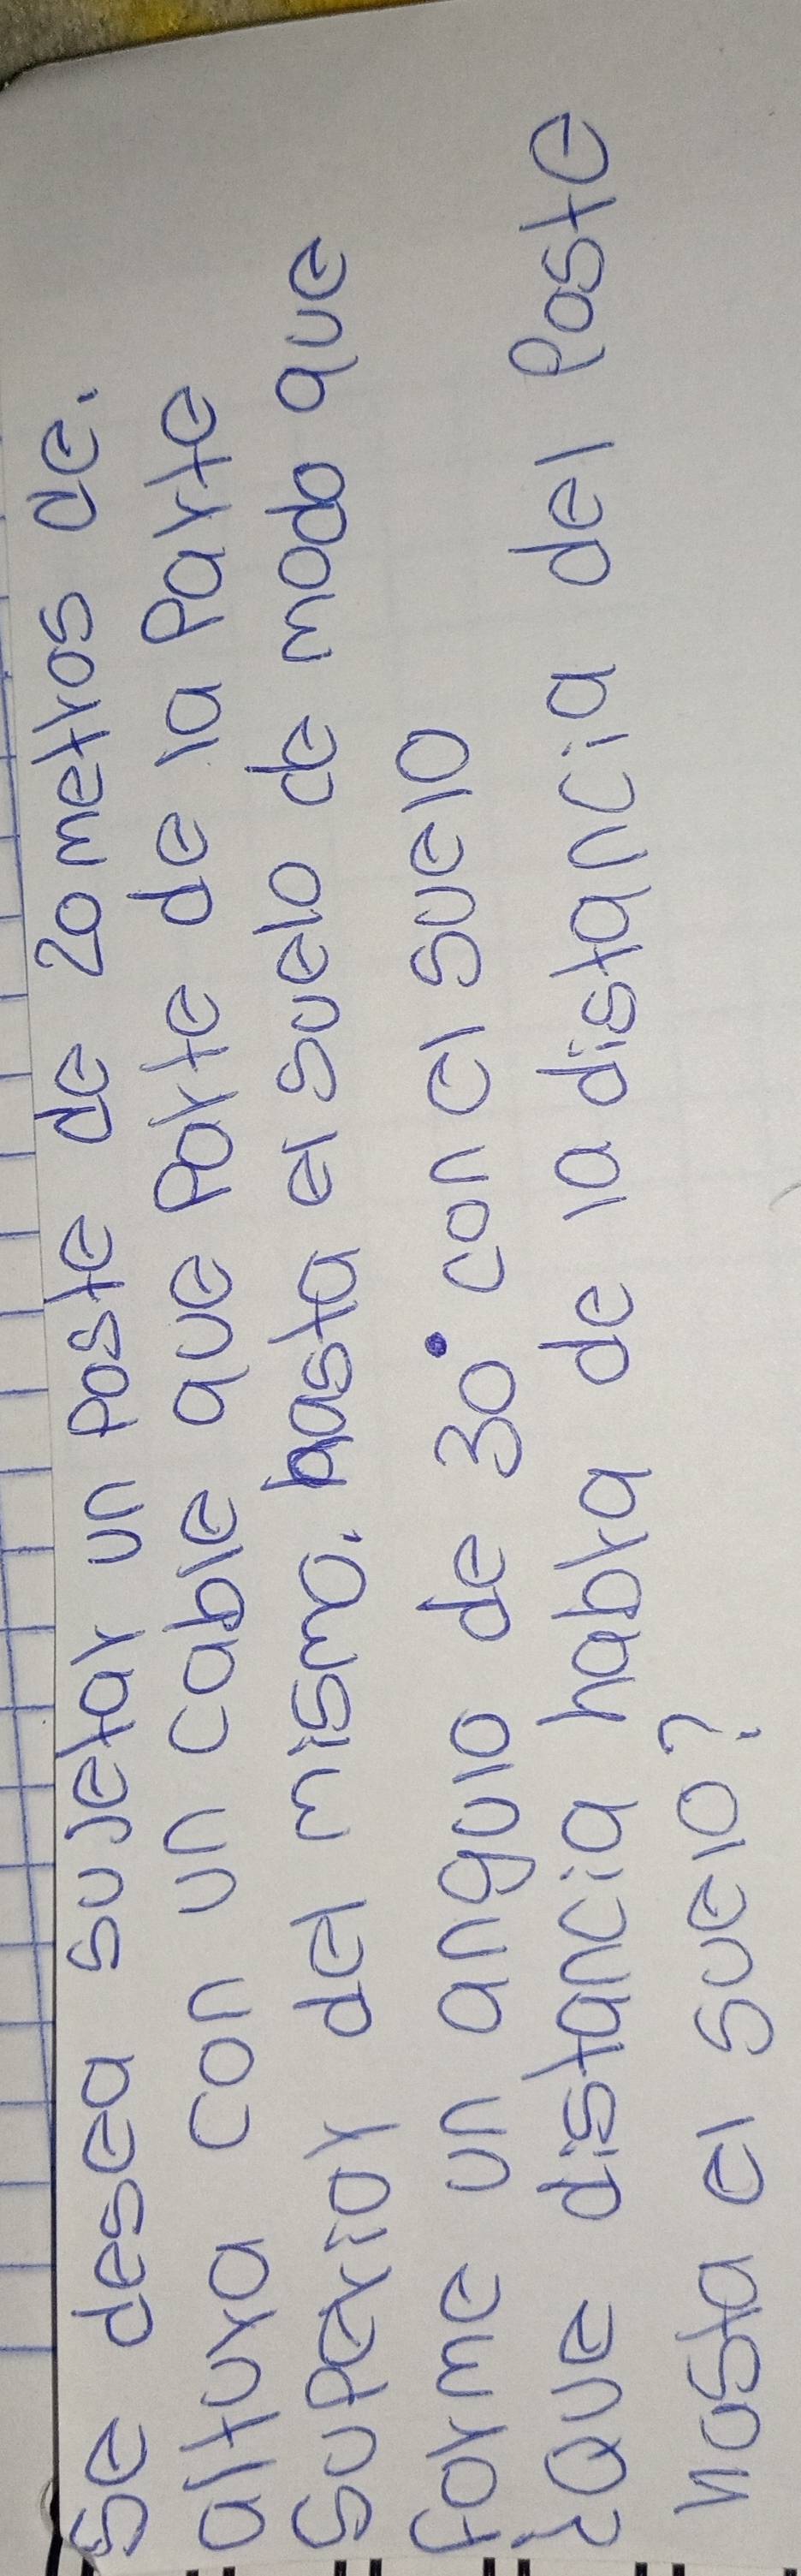 Se desea sujetar un poste de 20 metros de.
altura con un cable que parte de la parte
superior del mismo. hasta el suelo de modo que
forme un angulo de 30° con el suelo
¿Que distancia habra de la distancia del poste
hasta el suelo?